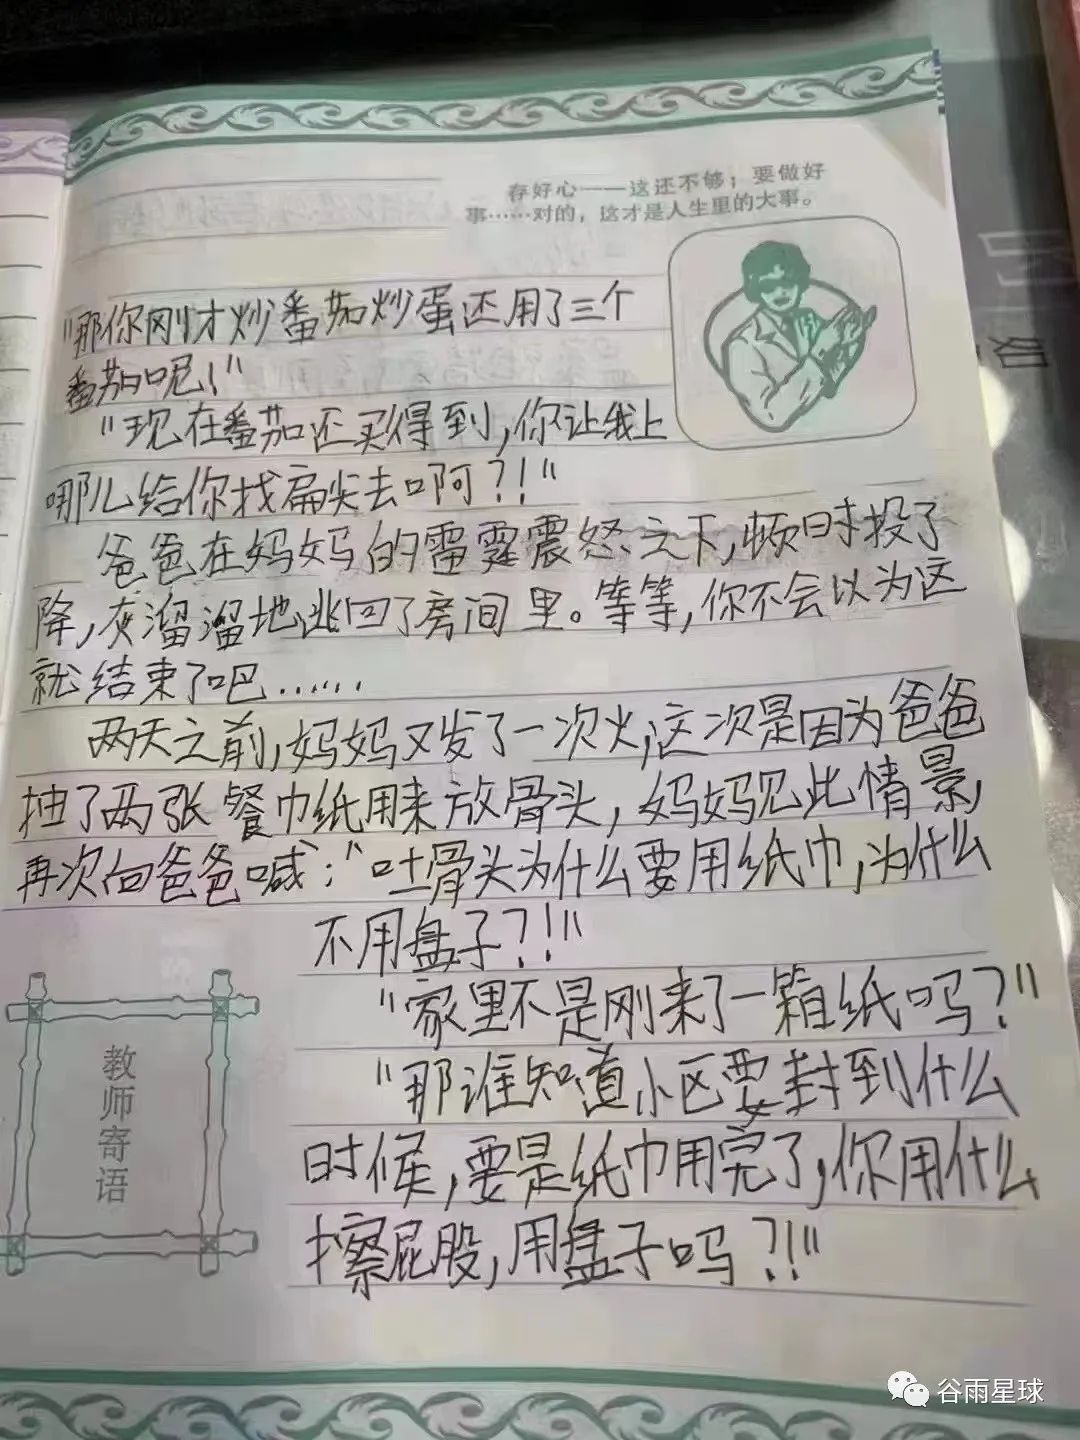 存好心——这还不够；要做好
事……对的，这才是人生里的大事。
"那你刚才炒番茄炒蛋还用了三个
番茄呢！"
"现在番茄还买得到，你让我上
哪儿给你找扁尖去啊？！"
爸爸在妈妈的雷霆震怒之下，顿时投了
降，灰溜溜地逃回了房间里。等等，你不会以为这
就结束了吧……
两天之前，妈妈又发了一次火，这次是因为爸爸
抽了两张餐巾纸用来放骨头，妈妈见此情景，
再次向爸爸喊："吐骨头为什么要用纸巾，为什么
不用盘子？！"
"家里不是刚来了一箱纸吗？"
"那谁知道小区要封到什么
时候，要是纸巾用完了，你用什么
擦屁股，用盘子吗？！"
教师寄语
如
谷雨星球